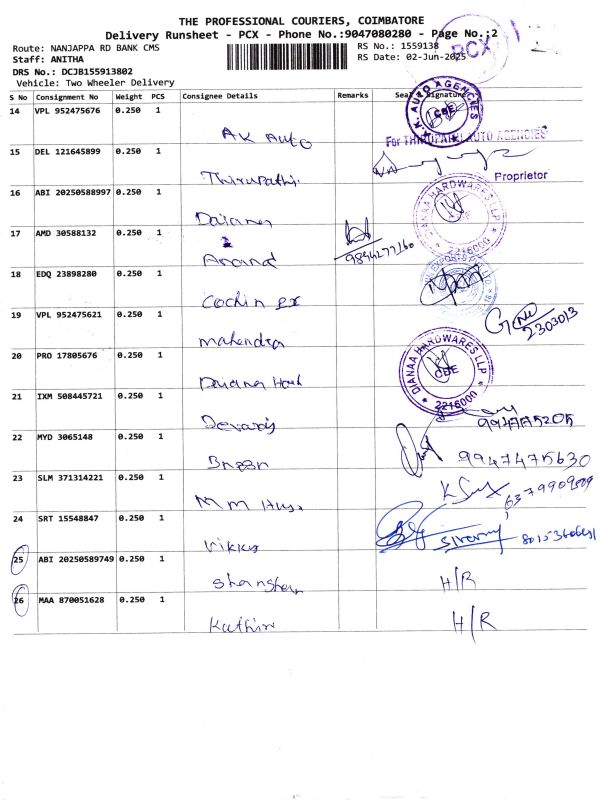 THE PROFESSIONAL COURIERS, COIMBATORE
Delivery Runsheet - PCX - Phone No.:9047080280 - Page No.:2
Route: NANJAPPA RD BANK CMS
RS No.: 1559138
PCX
Staff: ANITHA
RS Date: 02-Jun-2025
DRS No.: DCJB155913802
Vehicle: Two Wheeler Delivery
S No Consignment No Weight PCS Consignee Details Remarks Seal Signature
14 VPL 952475676 0.250 1
AK Auto
K. AUTO AGENCIES CBE
For THIRUPATHI AUTO AGENCIES
15 DEL 121645899 0.250 1
Thirupathi
Proprietor
16 ABI 20250588997 0.250 1
DIANAA HARDWARES LLP CBE 2216000
17 AMD 30588132 0.250 1
Anand
18 EDQ 23898280 0.250 1
Cochin ex
19 VPL 952475621 0.250 1
mahendra
2303013
20 PRO 17805676 0.250 1
DIANAA HARDWARES LLP CBE 2216000
21 IXM 508445721 0.250 1
Devaraj
22 MYD 3065148 0.250 1
9947475630
23 SLM 371314221 0.250 1
24 SRT 15548847 0.250 1
25 ABI 20250589749 0.250 1
H/R
26 MAA 870051628 0.250 1
Kathir
H/R